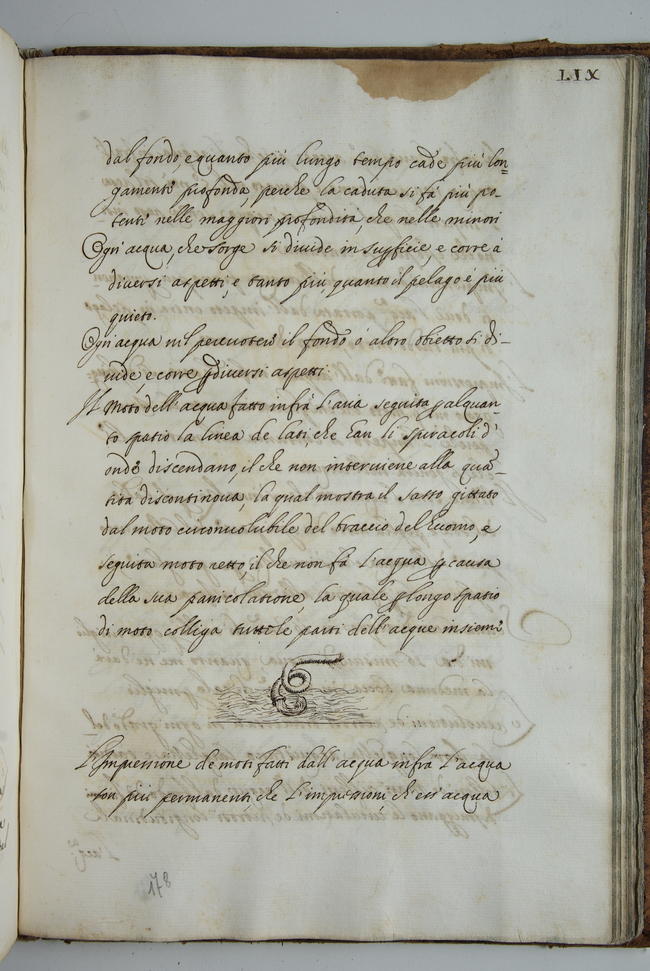 LIX
dal fondo, e quanto più lungo tempo cade più lon=
gamente profonda, perche la caduta si fà più po-
tente nelle maggiori profondità, che nelle minori
Ogn'acqua, che sorge si divide in supficie, e corre à
diversi aspetti, e tanto più, quanto il pelago è più
quieto.
Ogn'acqua nel percuotere il fondo ò altro obietto si di-
vide, e corre p diversi aspetti
Il Moto dell'acqua fatto infrà l'aria seguita p alquan-
to spatio la linea de lati, che han li spiracoli d'
onde discendano, il che non interviene alla quā-
tità discontinoua, la qual mostra il sasso gittato
dal moto circonvolubile del braccio del huomo, e
seguita moto retto, il che non fà l'acqua p causa
della sua panicolatione, la quale p longo spatio
di moto colliga tutte le parti dell'acque insieme
L'Impressione de moti fatti dall'acqua infrà l'acqua
son più permanenti che l'impressioni, ch'ess'acqua
178